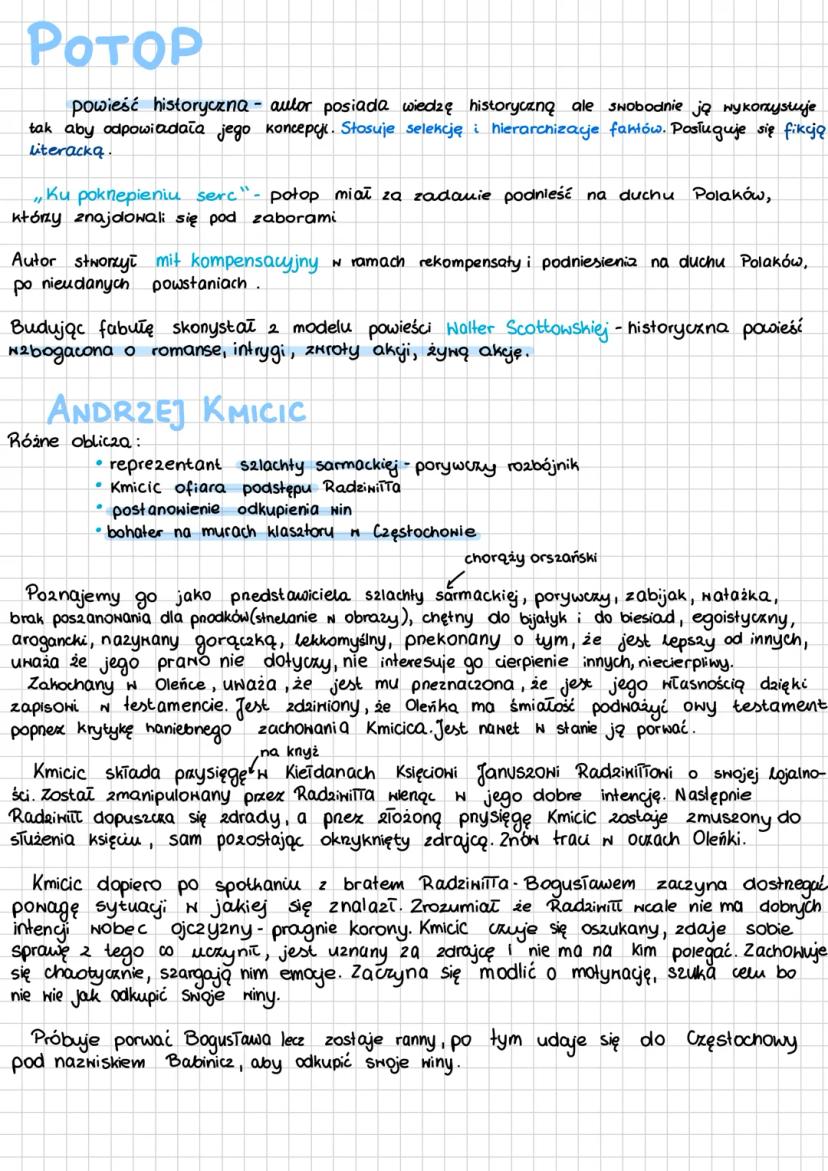 POTOP
powieść historyczna - autor posiada wiedzę historyczną ale swobodnie ją wykorzystuje
tak aby odpowiadała jego koncepcji. Stosuje selekcję i hierarchizację faktów. Posługuje się fikcją
literacką.
„Ku pokrzepieniu serc" - potop miał za zadanie podnieść na duchu Polaków,
którzy znajdowali się pod zaborami
Autor stworzył mit kompensacyjny w ramach rekompensaty i podniesienia na duchu Polaków,
po nieudanych powstaniach.
Budując fabułę skorzystał z modelu powieści Walter Scottowskiej - historyczna powieść
wzbogacona o romanse, intrygi, zwroty akcji, żywą akcję.
ANDRZEJ KMICIC
Różne oblicza:
• reprezentant szlachty sarmackiej - porywczy rozbójnik
• Kmicic ofiara podstępu Radziwiłła
• postanowienie odkupienia win
• bohater na murach klasztoru w Częstochowie
chorąży orszański
Poznajemy go jako przedstawiciela szlachty sarmackiej, porywczy, zabijak, watażka,
brak poszanowania dla przodków (strzelanie w obrazy), chętny do bijatyk i do biesiad, egoistyczny,
arogancki, nazywany gorączką, lekkomyślny, przekonany o tym, że jest lepszy od innych,
uważa że jego prawo nie dotyczy, nie interesuje go cierpienie innych, niecierpliwy.
Zakochany w Oleńce, uważa, że jest mu przeznaczona, że jest jego własnością dzięki
zapisowi w testamencie. Jest zdziwiony, że Oleńka ma śmiałość podważyć owy testament
poprzez krytykę haniebnego zachowania Kmicica. Jest nawet w stanie ją porwać.
na krzyż
Kmicic składa przysięgę w Kiejdanach Księciowi Januszowi Radziwiłłowi o swojej lojalno-
ści. Został zmanipulowany przez Radziwiłła wierząc w jego dobre intencję. Następnie
Radziwiłł dopuszcza się zdrady, a przez złożoną przysięgę Kmicic zostaje zmuszony do
służenia księciu, sam pozostając okrzyknięty zdrajcą. Znów traci w oczach Oleńki.
Kmicic dopiero po spotkaniu z bratem Radziwiłła - Bogusławem zaczyna dostrzegać
powagę sytuacji w jakiej się znalazł. Zrozumiał że Radziwiłł wcale nie ma dobrych
intencji wobec ojczyzny - pragnie korony. Kmicic czuje się oszukany, zdaje sobie
sprawę z tego co uczynił, jest uznany za zdrajcę i nie ma na kim polegać. Zachowuje
się chaotycznie, szargają nim emocje. Zaczyna się modlić o motywację, szuka celu bo
nie wie jak odkupić swoje winy.
Próbuje porwać Bogusława lecz zostaje ranny, po tym udaje się do Częstochowy
pod nazwiskiem Babinicz, aby odkupić swoje winy.